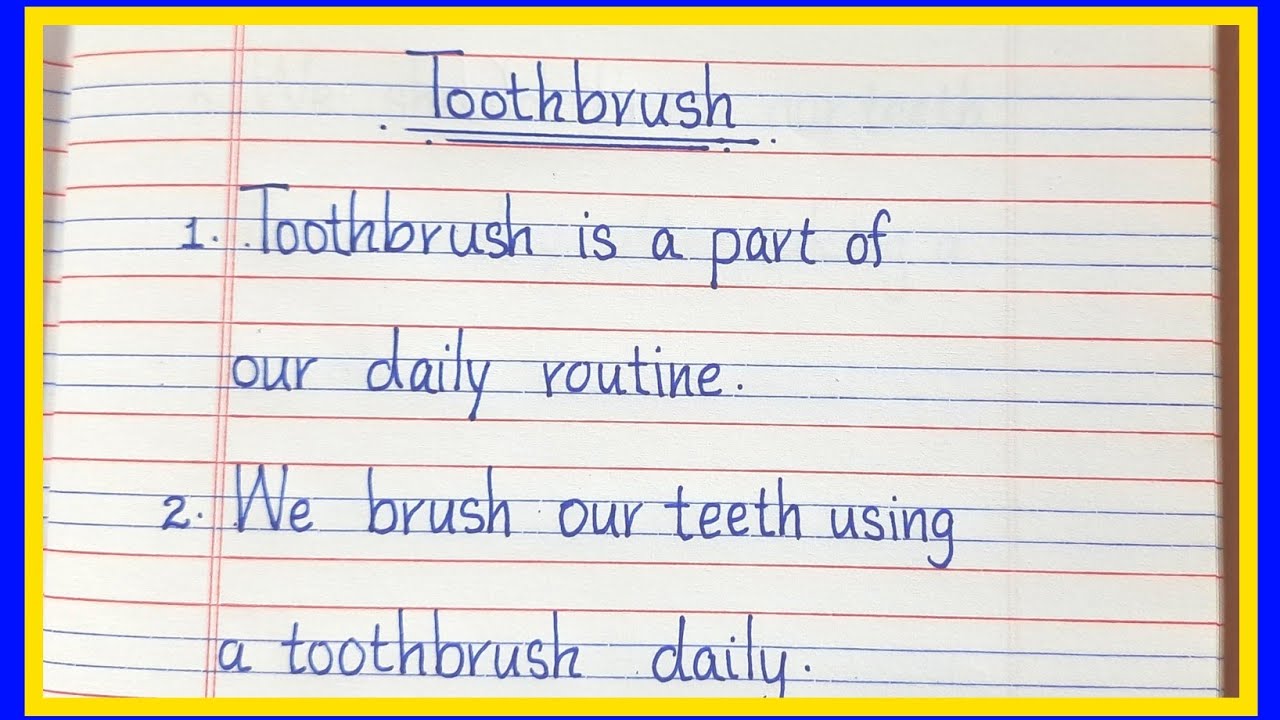 Toothbrush
1. Toothbrush is a part of
our daily routine.
2. We brush our teeth using
a toothbrush daily.